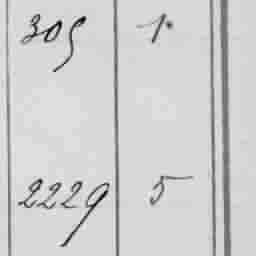 305 1.
2229 5